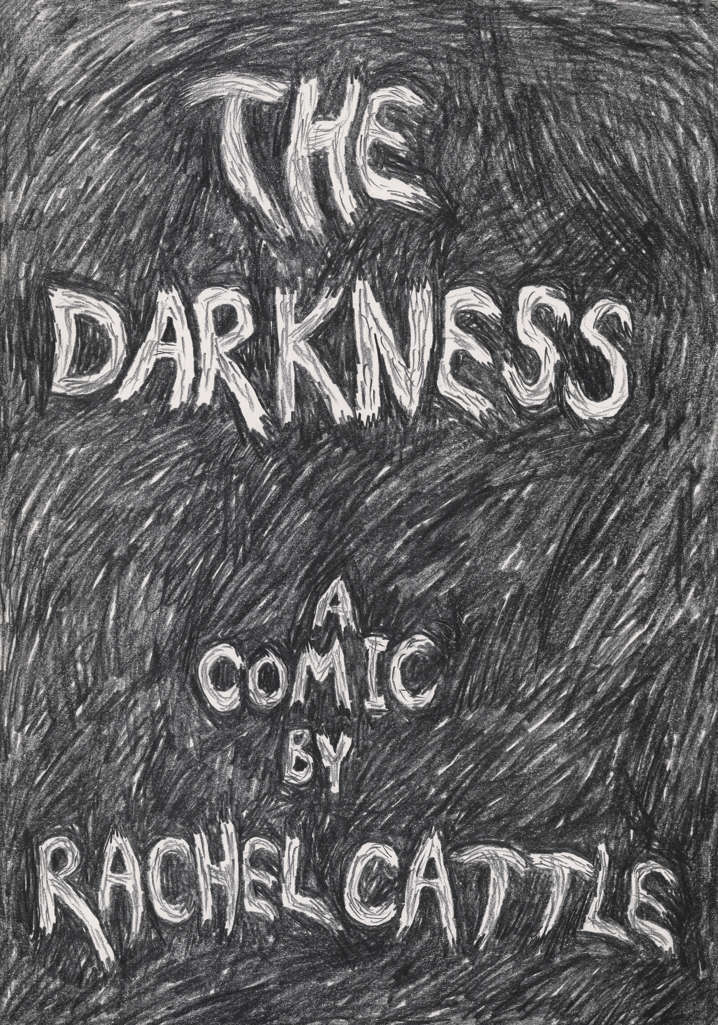 THE
DARKNESS
A
COMIC
BY
RACHEL CATTLE